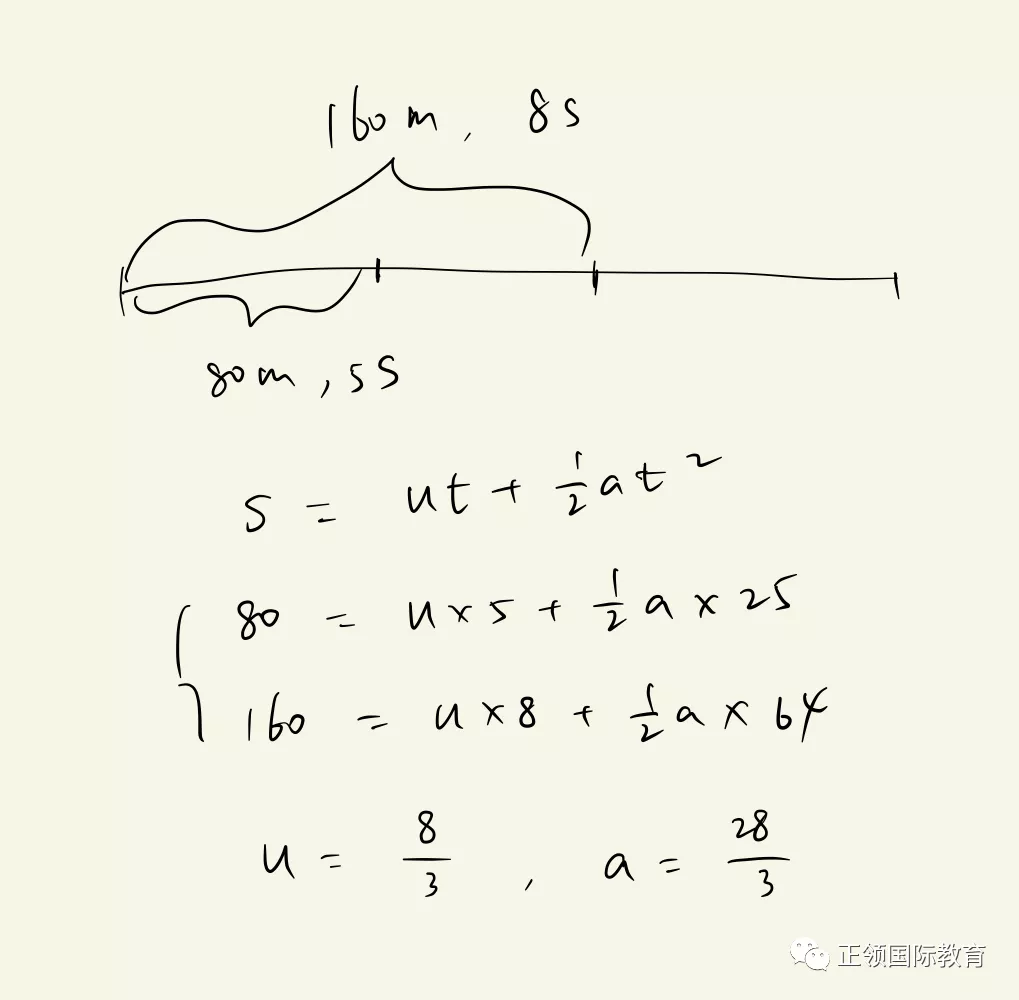 160m, 8s
80m, 5s
s = ut + 1/2 at²
80 = u×5 + 1/2 a × 25
160 = u×8 + 1/2 a × 64
u = 8/3, a = 28/3
正领国际教育